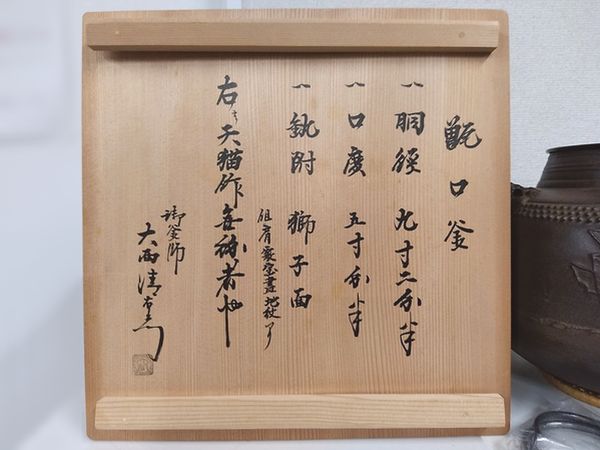 甑口釜
一 胴徑 九寸二分半
一 口廣 五寸分半
一 釻附 獅子面
右ハ天猫作無紛者也
但肩霰宝書地紋アリ
御釜師
大西清右衛門